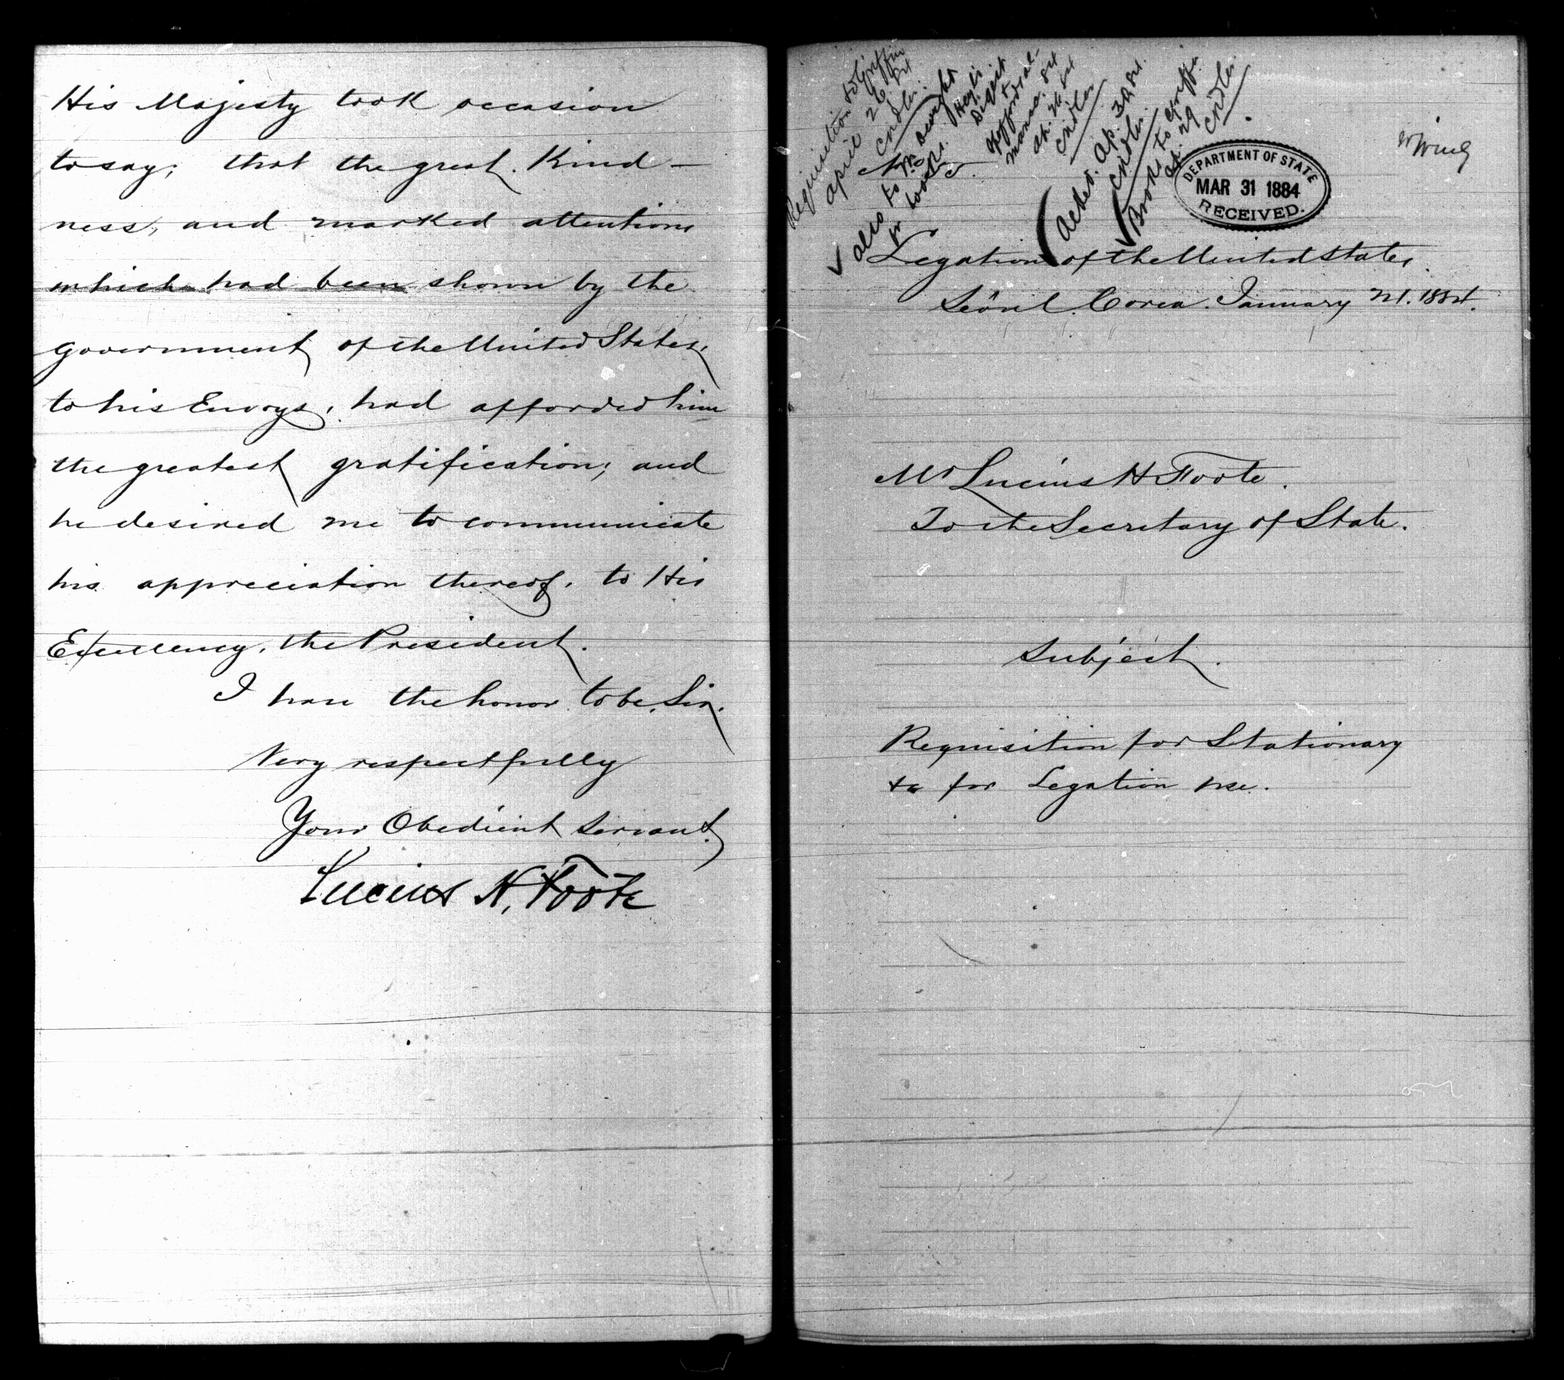 His Majesty took occasion
to say; that the great Kind-
ness, and marked attentions
which had been shown by the
government of the United States,
to his Envoys, had afforded him
the greatest gratification; and
he desired me to communicate
his appreciation thereof, to His
Excellency, the President.
I have the honor to be, Sir,
Very respectfully
Your Obedient Servant
Lucius H. Foote
Requisition to Griffin
April 26
also to Mr
for books.
ap. 26
Ackd. ap. 30
Books to Griffin
ap. 29
DEPARTMENT OF STATE
MAR 31 1884
RECEIVED.
Legation of the United States,
Seoul, Corea. January 21. 1884.
Mr Lucius H Foote.
To the Secretary of State.
Subject.
Requisition for Stationary
&c for Legation use.